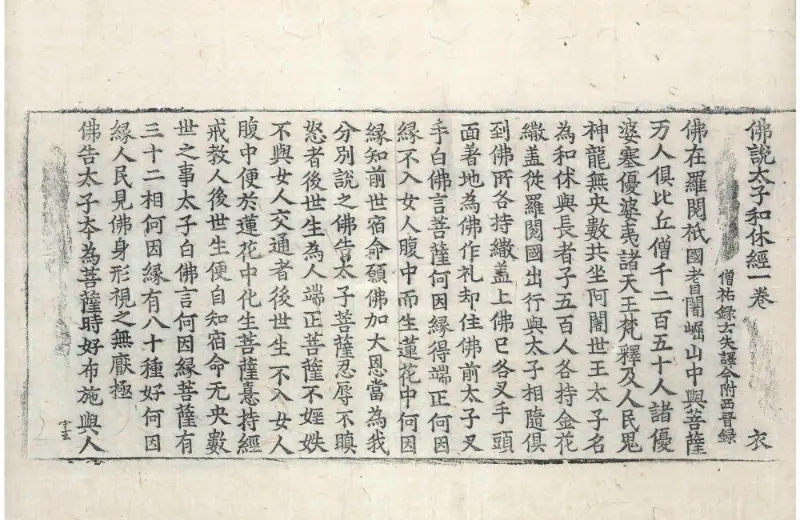 佛說太子和休經一卷 衣
僧祐錄云失譯今附西晉錄
佛在羅閱祇國耆闍崛山中與菩薩
万人俱比丘僧千二百五十人諸優
婆塞優婆夷諸天王梵釋及人民鬼
神龍無央數共坐阿闍世王太子名
為和休與長者子五百人各持金花
繖盖從羅閱國出行與太子相隨俱
到佛所各持繖盖上佛已各叉手頭
面著地為佛作礼却住佛前太子叉
手白佛言菩薩何因緣得端正何因
緣不入女人腹中而生蓮花中何因
緣知前世宿命願佛加大恩當為我
分別說之佛告太子菩薩忍辱不瞋
怒者後世生為人端正菩薩不婬妷
不與女人交通者後世生不入女人
腹中便於蓮花中化生菩薩憙持經
戒教人後世生便自知宿命无央數
世之事太子白佛言何因緣菩薩有
三十二相何因緣有八十種好何因
緣人民見佛身形視之無猒極
佛告太子夲為菩薩時好布施與人